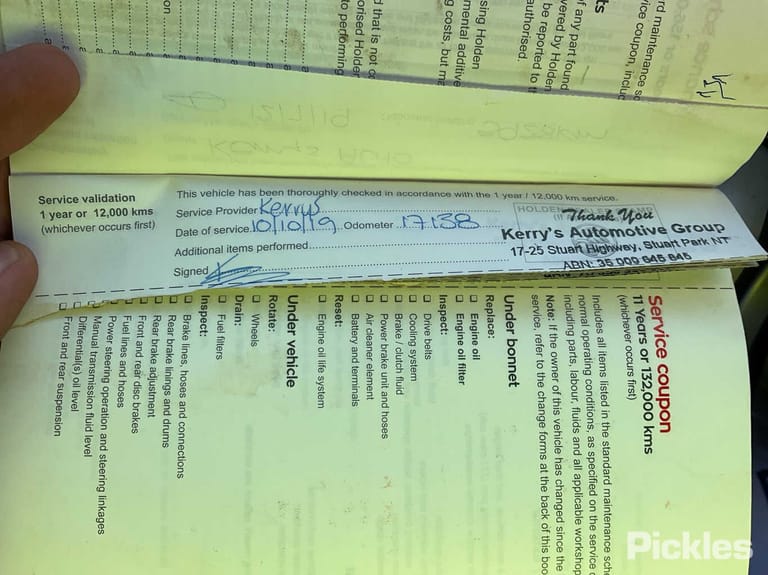 ts
of any part found
vered by Holden
be reported to t
authorised.
ising Holden
mental additive
g costs, but ma
d that is not co
orised Holden
to performing
ard maintenance sc
vice coupon, includ
12/7/19
Kerry's Auto
Service validation
1 year or 12,000 kms
(whichever occurs first)
This vehicle has been thoroughly checked in accordance with the 1 year / 12,000 km service.
Service Provider Kerrys
Date of service 10/10/19 Odometer 17138
Additional items performed
Signed
Thank You
Kerry's Automotive Group
17-25 Stuart Highway, Stuart Park NT
ABN: 35 009 645 645
Service coupon
11 Years or 132,000 kms
(whichever occurs first)
Includes all items listed in the standard maintenance sche
normal operating conditions, as specified on the service c
including parts, labour, fluids and all applicable workshop
Note: If the owner of this vehicle has changed since the
service, refer to the change forms at the back of this boo
Under bonnet
Replace:
Engine oil
Engine oil filter
Inspect:
Drive belts
Cooling system
Brake / clutch fluid
Power brake unit and hoses
Air cleaner element
Battery and terminals
Reset:
Engine oil life system
Under vehicle
Rotate:
Wheels
Drain:
Fuel filters
Inspect:
Brake lines, hoses and connections
Rear brake linings and drums
Rear brake adjustment
Front and rear disc brakes
Fuel lines and hoses
Power steering operation and steering linkages
Manual transmission fluid level
Differential(s) oil level
Front and rear suspension
Pickles